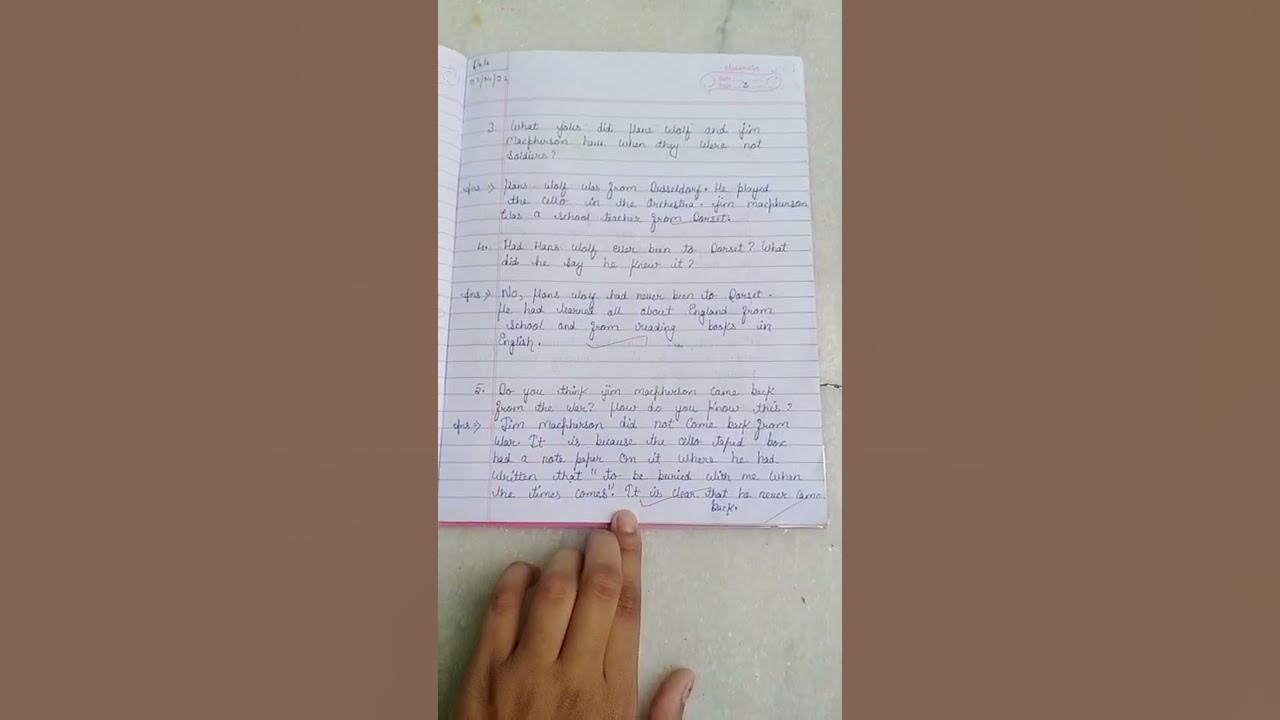 Date
classmate
Date
Page 3
3. What jobs did Hans Wolf and Jim
Macpherson have when they were not
soldiers?
Ans :- Hans Wolf was from Dusseldorf. He played
the cello in the Orchestra. Jim macpherson
was a school teacher from Dorset.
4. Had Hans Wolf ever been to Dorset? What
did he say he knew it?
Ans :- No, Hans Wolf had never been to Dorset.
He had learned all about England from
school and from reading books in
English.
5. Do you think Jim macpherson came back
from the war? How do you know this?
Ans :- Jim macpherson did not come back from
war. It is because the cello taped box
had a note paper on it where he had
written that "to be buried with me when
the times comes". It is clear that he never came
back.